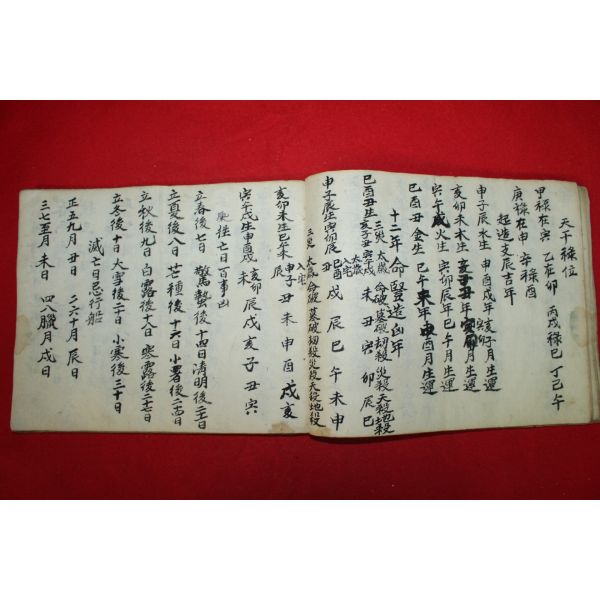 天干祿位
甲祿在寅 乙在卯 丙戊祿巳 丁己午
庚祿在申 辛祿酉
起造支辰吉年
申子辰水生 申酉戌年 亥子月生運
亥卯未木生 亥子丑年 寅卯月生運
寅午戌火生 寅卯辰年 巳午月生運
巳酉丑金生 巳午未年 申酉月生運
十二年命竪造凶年
三災 太歲 命破 墓破 劫殺 災殺 天殺 地殺
巳酉丑生 亥子丑 寅午戌 未丑寅卯辰巳
太歲 入宅
申子辰生 寅卯辰 巳酉丑 戌辰巳午未申
三災 太歲 命破 墓破 劫殺 災殺 天殺 地殺
入宅
亥卯未生 巳午未 申子辰 丑未申酉戌亥
寅午戌生 申酉戌 亥卯未 辰戌亥子丑寅
往亡日百事凶
立春後七日 驚蟄後十四日 清明後二十一日
立夏後八日 芒種後十六日 小暑後二十四日
立秋後九日 白露後十八日 寒露後二十七日
立冬後十日 大雪後二十日 小寒後三十日
滅亡日忌行船
正五九月 丑日 二六十月 辰日
三七至月 未日 四八臘月 戌日